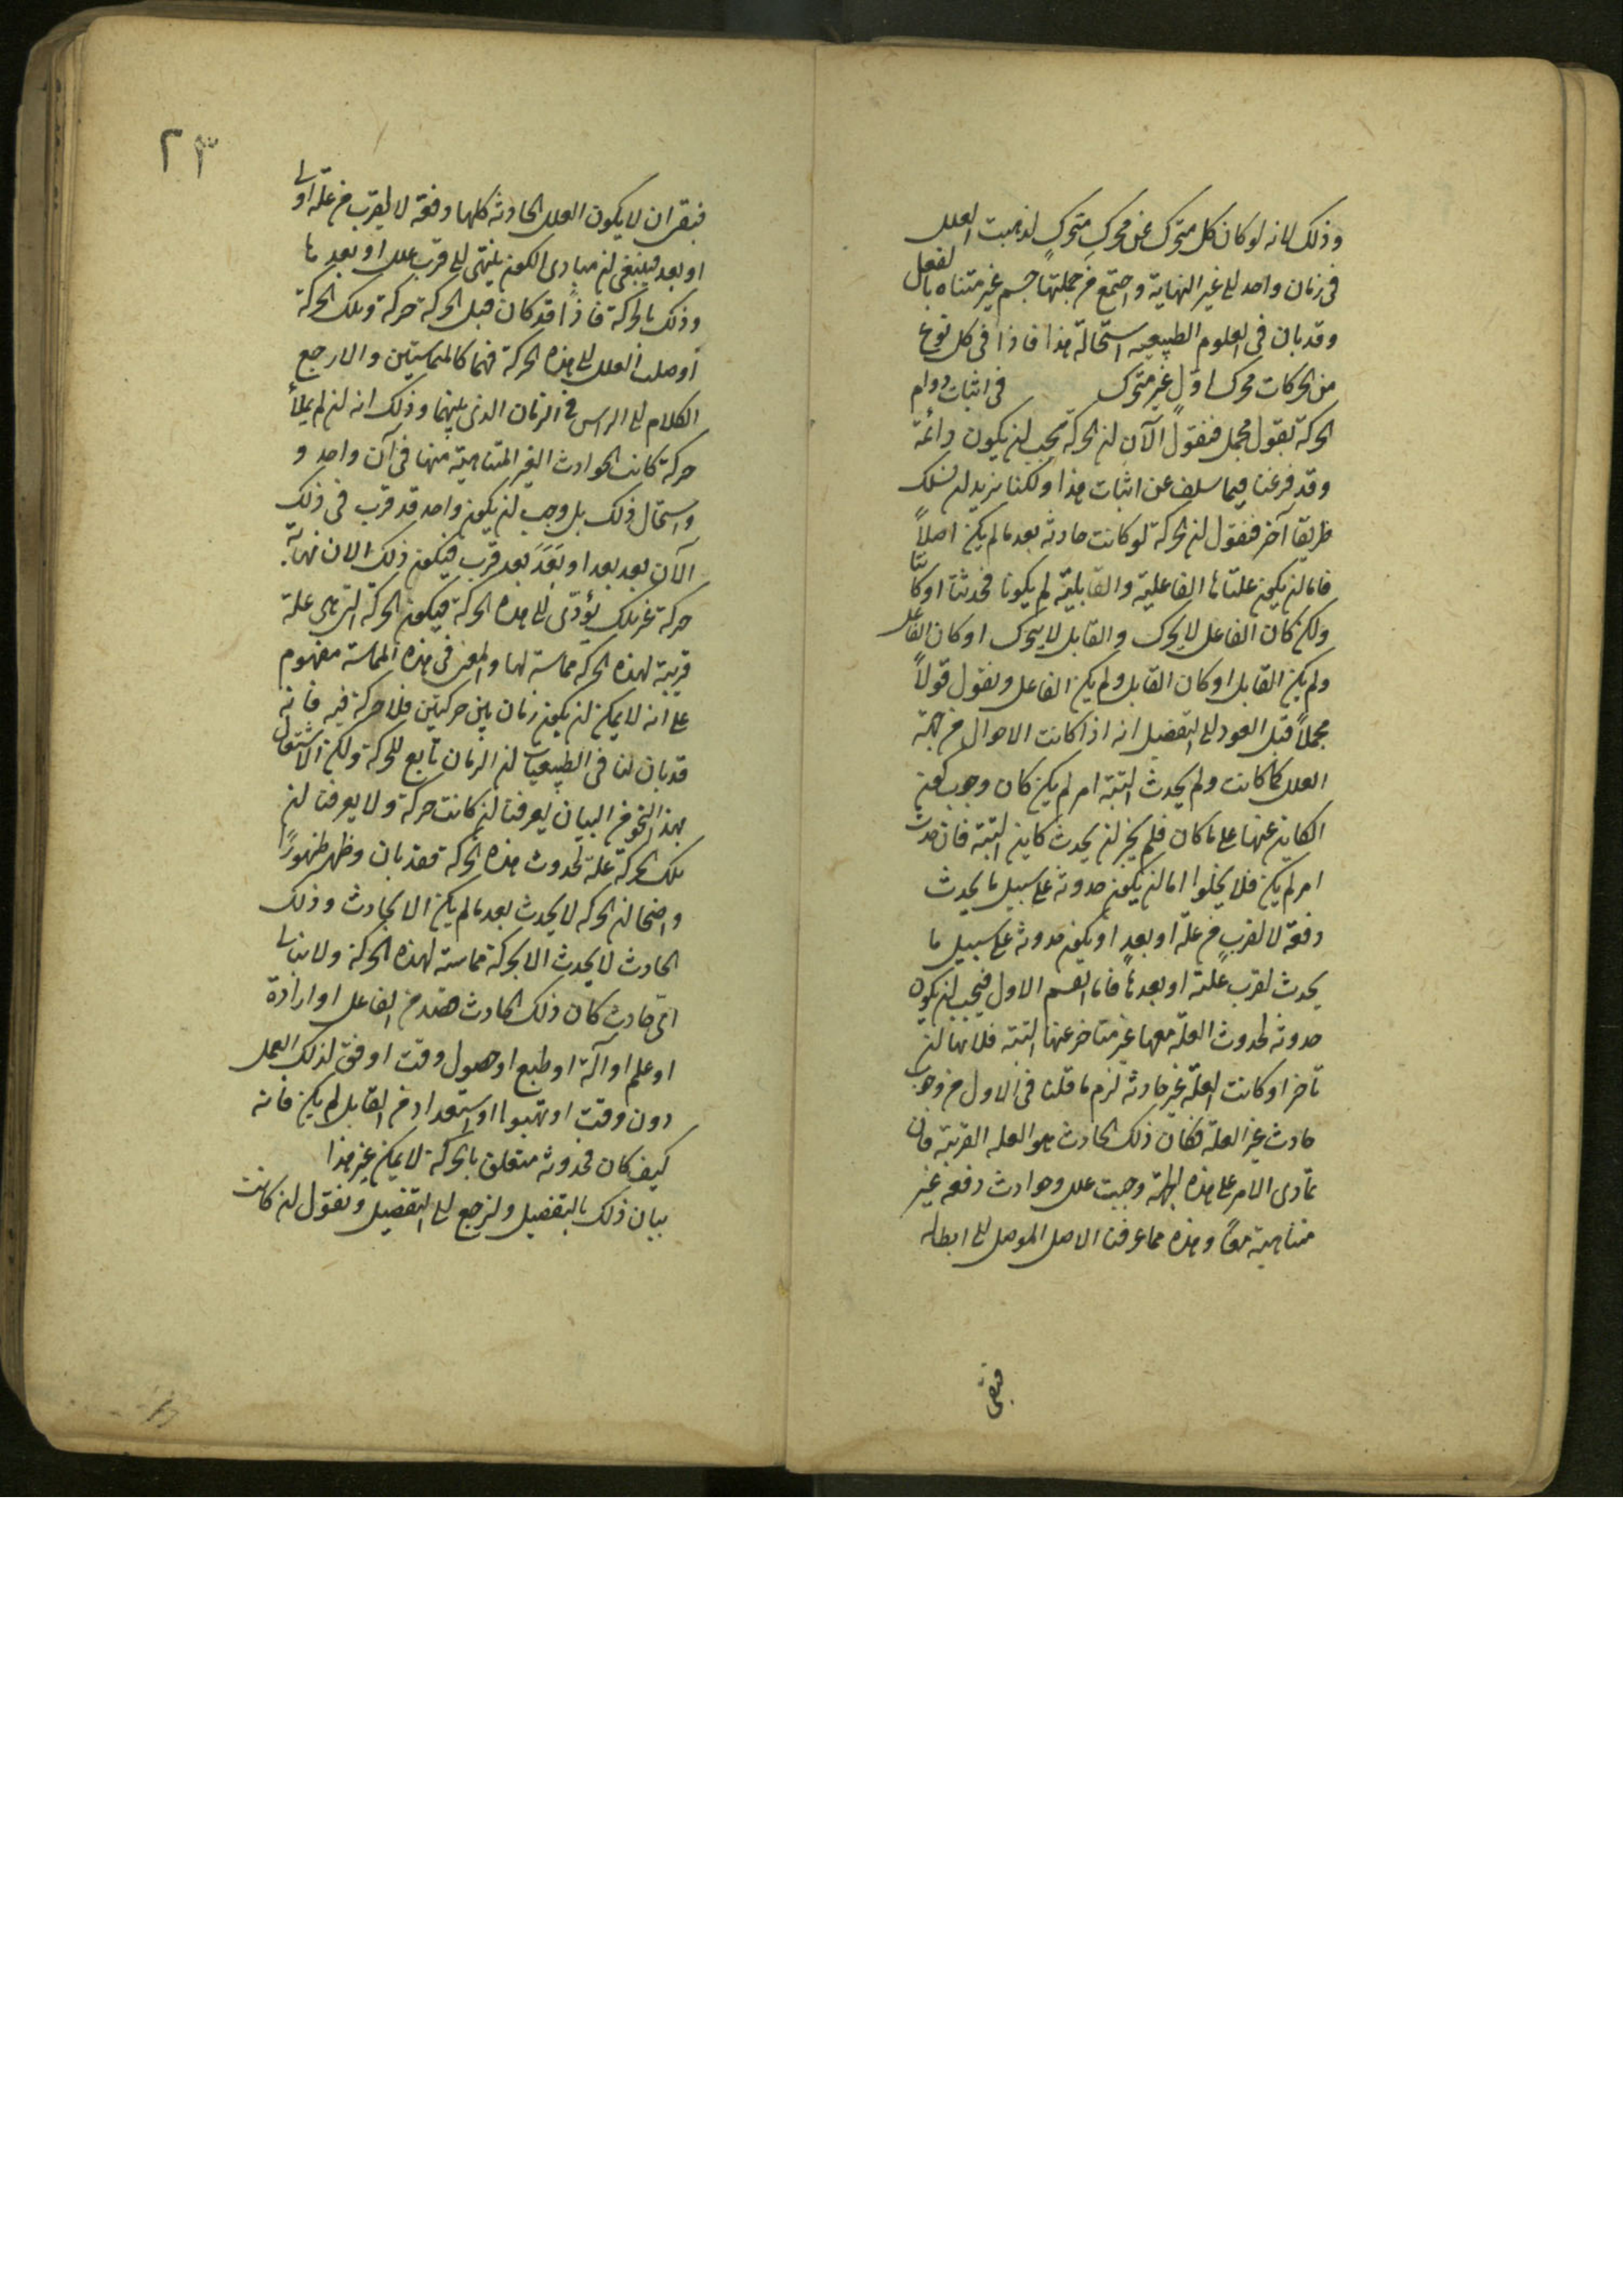 وذلك لانه لو كان كل متحرك عن محرك متحرك لذهبت العلل
فى زمان واحد الى غير النهاية واجتمع من جملتها جسم غير متناه بالفعل
وقد بان فى العلوم الطبيعيه استحالة هذا فاذا فى كل نوع
من الحركات محرك اول غير متحرك فى اثبات دوام
الحركة بقول مجمل فنقول الآن ان الحركة يجب ان يكون دائمة
وقد فرغنا فيما سلف عن اثبات هذا ولكنا نريد ان نسلك
طريقا آخر فنقول ان الحركة لو كانت حادثه بعد ما لم يكن اصلاً
فاما ان يكون علتاها الفاعلية والقابلية لم يكونا فحدثتا او كانتا
ولكن كان الفاعل لا يحرك والقابل لا يتحرك او كان الفاعل
ولم يكن القابل او كان القابل ولم يكن الفاعل ونقول قولاً
مجملاً قبل العود الى التفصيل انه اذا كانت الاحوال من جهة
العلل كما كانت ولم يحدث البتة امر لم يكن كان وجوب كون
الكاين عنها على ما كان فلم يجز ان يحدث كاين البتة فان حدث
امر لم يكن فلا يخلوا اما ان يكون حدوثه على سبيل ما يحدث
دفعة لا لقرب من علة او بعد او يكون حدوثه على سبيل ما
يحدث لقرب علته او بعدها فاما القسم الاول فيجب ان يكون
حدوثه لحدوث العلة معها غير متاخر عنها البتة فلانها ان
تاخر او كانت العلة غير حادثة لزم ما قلنا فى الاول من وجوب
حادث غير العلة فكان ذلك الحادث هو العله القريبة فان
تمادى الامر على هذه الجهة وجبت علل وحوادث دفعه غير
متناهية معاً وهذه مما عرفنا الاصل الموصل الى ابطاله
فبقى
٢٣
فبقى ان لا يكون العلل الحادثه كلها دفعة لا لقرب من علة اولى
او بعد فينبغى ان مبادى الكون ينتهى الى قرب علل او بعدها
وذلك بالحركة فاذاً قد كان قبل الحركة حركة وتلك الحركة
اوصلت العلل الى هذه الحركة فهما كالمتماستين والا رجع
الكلام الى الراس فى الزمان الذى بينهما وذلك انه ان لم يملأ
حركة كانت الحوادث الغير المتناهية منها فى آن واحد و
واستحال ذلك بل وجب ان يكون واحد قد قرب فى ذلك
الآن بعد بعد او بَعُدَ بعد قرب فيكون ذلك الان نهاية
حركة غير تلك يؤدى الى هذه الحركة فيكون الحركة التى هى علة
قريبة لهذه الحركة مماسة لها والمعنى فى هذه المماسة مفهوم
على انه لا يمكن ان يكون زمان بين حركتين فلا حركة فيه فانه
قد بان لنا فى الطبيعيات ان الزمان تابع للحركة ولكن الاشتغال
بهذا النحو من البيان يعرفنا ان كانت حركة ولا يعرفنا ان
تلك الحركة علة لحدوث هذه الحركة فقد بان وظهر ظهوراً
واضحا ان الحركه لا يحدث بعد ما لم يكن الا بحادث وذلك
الحادث لا يحدث الا بحركة مماسته لهذه الحركة ولا نبالى
اى حادث كان ذلك الحادث قصد من الفاعل او ارادة
او علم او آلة او طبع او حصول وقت اوفق لذلك العمل
دون وقت او تهيوا او استعداد من القابل لم يكن فانه
كيف كان فحدوثه متعلق بالحركة لا يمكن غير هذا
بيان ذلك بالتفصيل ولنرجع الى التفصيل ونقول ان كانت